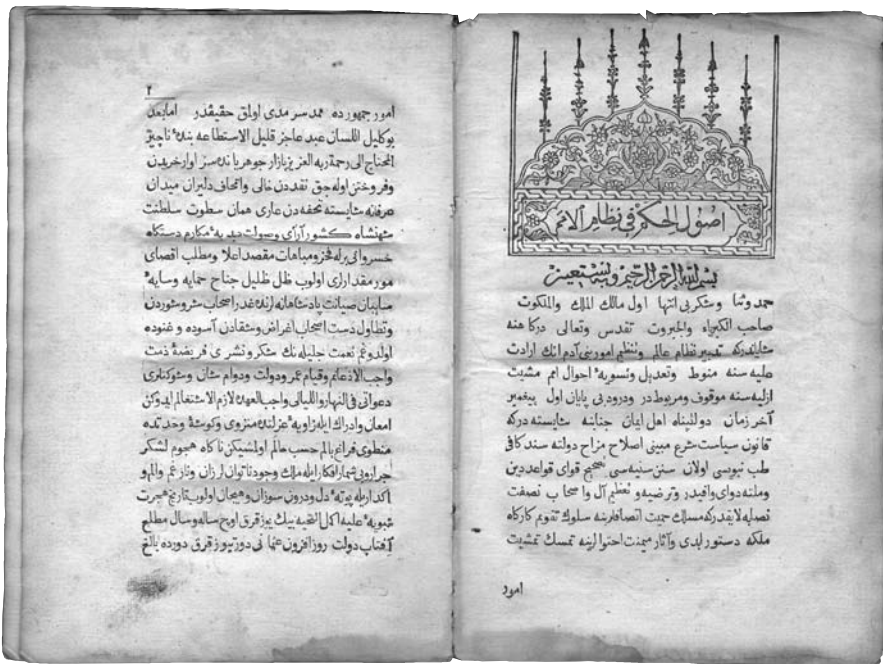 اصول الحكم فی نظام الامم
بسم الله الرحمن الرحیم وبه نستعین
حمد وثنا وشكر بی انتها اول مالك الملك والملكوت
صاحب الكبریاء والجبروت تقدس وتعالی دركاهنه
شایاندركه تدبیر نظام عالم وتنظیم امور بنی آدم انك ارادت
علیه سنه منوط وتعدیل وتسویهٔ احوال امم مشیت
ازلیه سنه موقوف ومربوطدر ودرود بی پایان اول پیغمبر
آخر زمان دولتپناه اهل ایمان جنابنه شایسته دركه
قانون سیاست شرع مبینی اصلاح مزاج دولته سند كافی
طب نبویسی اولان سنن سنیه سی صحیح قوای قواعد دین
وملته دوای وافیدر وترضیه وتعظیم آل واصحاب نصفت
نصابه لایقدركه مسالك حمیت اتصافلرینه سلوك تقویم كارگاه
ملكه دستور ابدی وآثار میمنت احتوالرینه تمسك تمشیت
امور
٢
امور جمهورده ممد سرمدی اولمق حقیقدر امابعد
بوكلیل اللسان عبد عاجز قلیل الاستطاعه بندهٔ ناچیز
المحتاج الی رحمة ربه العزیز بازار جوهریانده سزاوار خریدن
وفروختن اوله جق نقددن خالی واتحاف دلیران میدان
عرفانه شایسته تحفه دن عاری همان سطوت سلطنت
شهنشاه كشور آرای وصولت دبدبهٔ مكارم دستكاه
خسروانی برله فخر ومباهات مقصد اعلا ومطلب اقصای
مور مقداری اولوب ظل ظلیل جناح حمایه وسایهٔ
سایبان صیانت پادشاهانه لرنده غدر اصحاب شر وشوردن
وتطاول دست اصحاب اغراض وشقادن آسوده وغنوده
اولدوغم نعمت جلیله نك شكر ونشری فریضهٔ ذمت
واجب الاذعانم وقیام عمر ودولت ودوام شان وشوكتلری
دعواتی فی النهار واللیالی واجب العهدهٔ لازم الاشتغالم ایدوكن
امعان وادراك ایله زاویهٔ عزلته منزوی وكوشهٔ وحدتده
منطوی فراغ بالم حسب حالم اولمشیكن ناكاه هجوم لشكر
جرار بی شمار افكار ایله ملك وجود ناتوان لرزان ونار غم والم و
اكدار ایله بوتهٔ دل ودرون سوزان وهیجان اولوب تاریخ هجرت
نبویهٔ علیه اكمل التحیه بیك یوز قرق اوچ ساله وسال مطلع
آفتاب دولت روز افزون عثمانی درتیوز قرق دورده بالغ